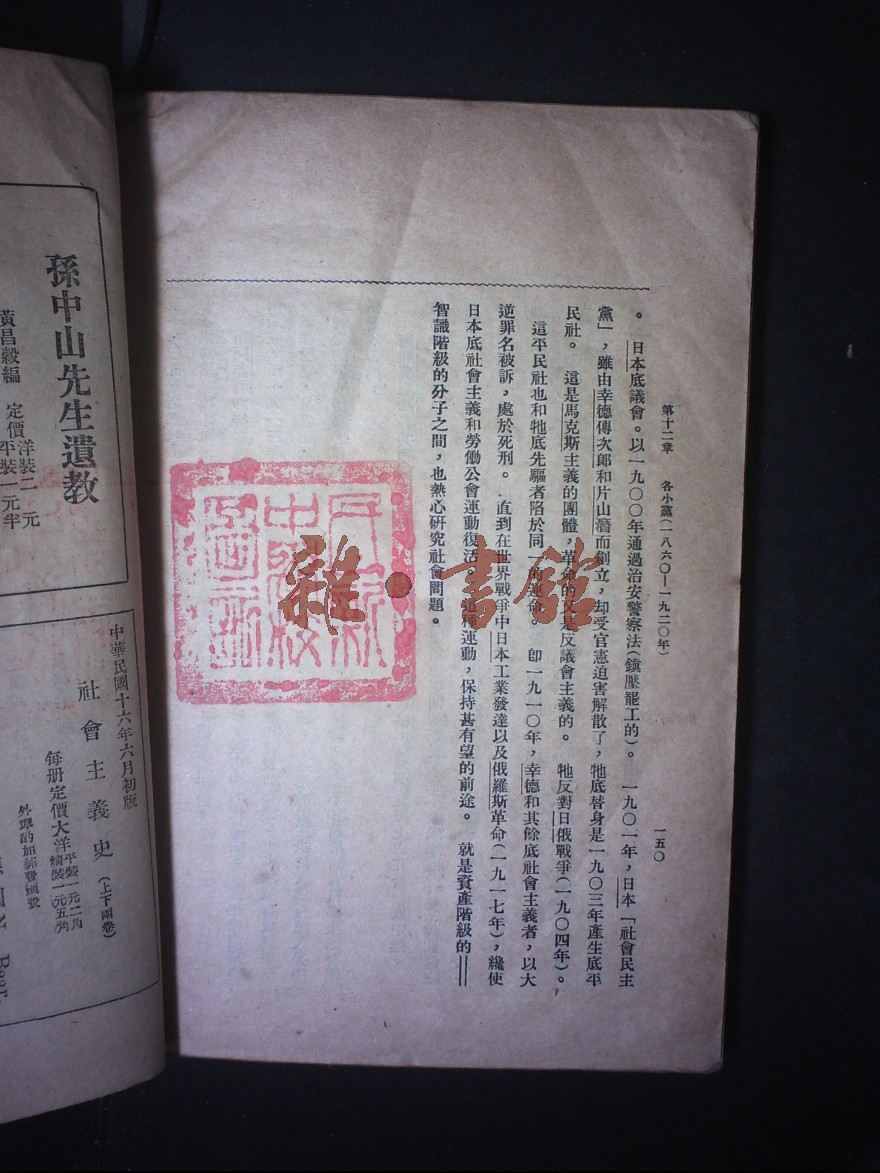 第十二章　各小黨(一八六〇—一九二〇年)
一五〇
。　日本底議會。以一九〇〇年通過治安警察法(鎮壓罷工的)。　一九〇一年，日本「社會民主
黨」，雖由幸德傳次郎和片山潛而創立，却受官憲迫害解散了，牠底替身是一九〇三年產生底平
民社。　這是馬克斯主義的團體，革命的又是反議會主義的。　牠反對日俄戰爭(一九〇四年)。
這平民社也和牠底先驅者陷於同一的運命。　卽一九一〇年，幸德和其餘底社會主義者，以大
逆罪名被訴，處於死刑。　直到在世界戰爭中日本工業發達以及俄羅斯革命(一九一七年)，纔使
日本底社會主義和勞働公會運動復活。　這種運動，保持甚有望的前途。　就是資產階級的——
智識階級的分子之間，也熱心研究社會問題。
雜·書館
孫中山先生遺教
黃昌穀編　定價洋裝二元平裝一元半
中華民國十六年六月初版
社會主義史(上下兩卷)
每册定價大洋平裝一元二角精裝一元五角
外埠酌加郵費匯費